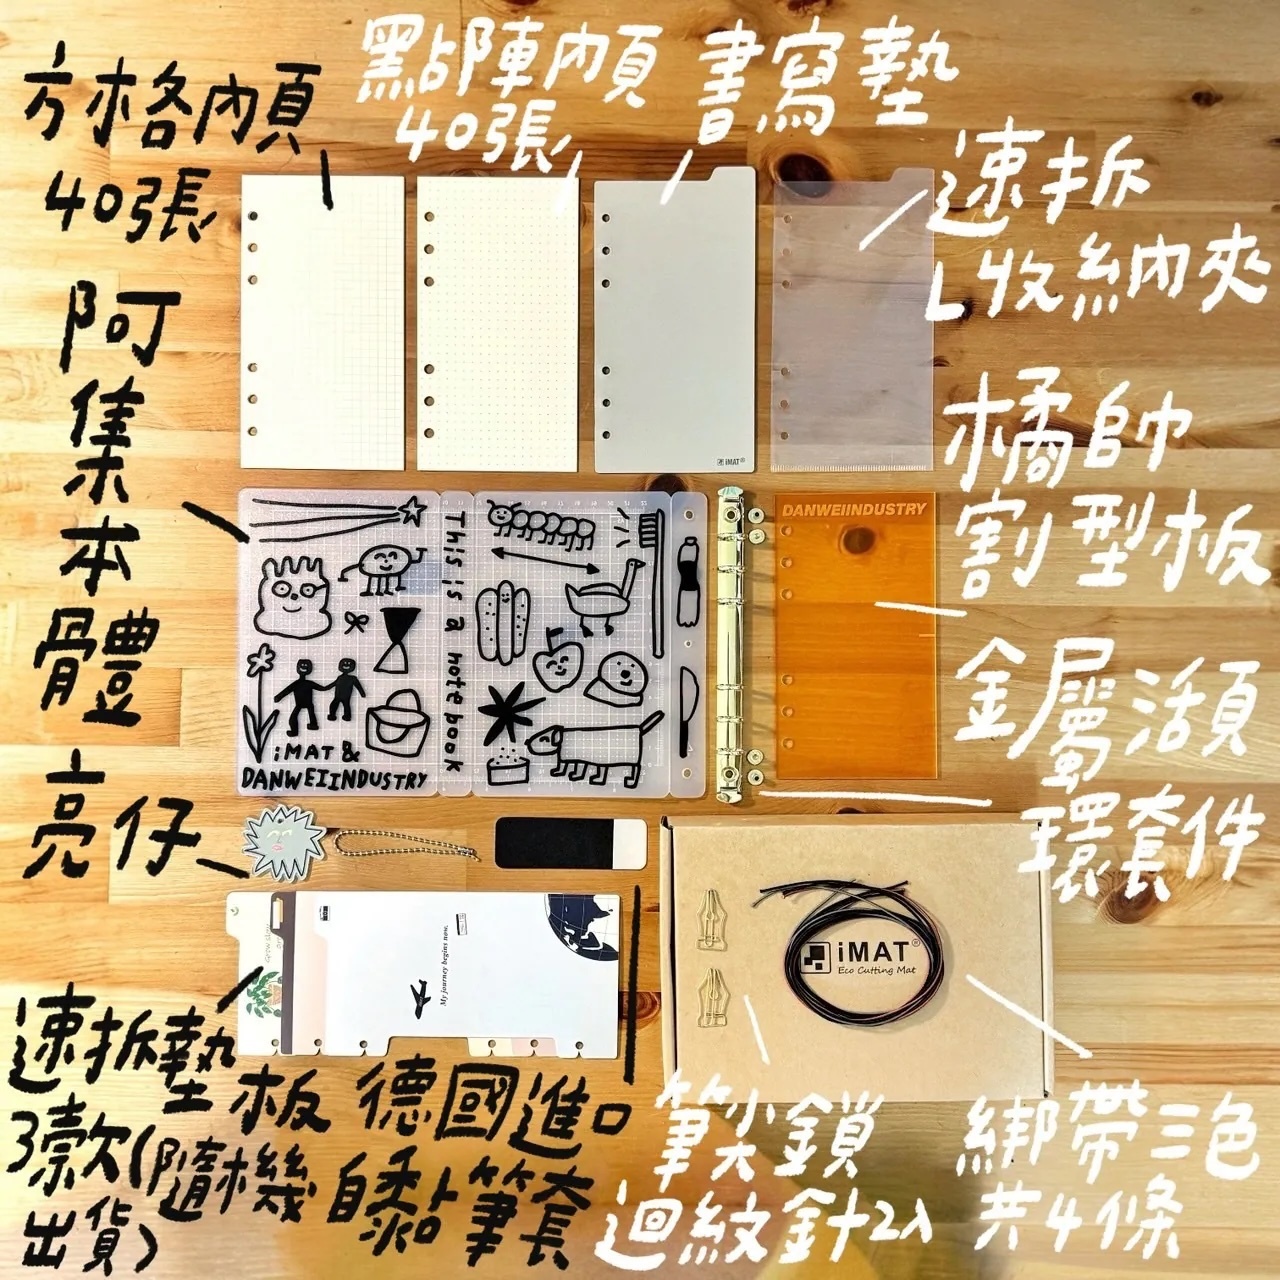 方格內頁
40張
點陣內頁
40張
書寫墊
速拆
L收納夾
阿集本體
橘帥
割型板
DANWEIINDUSTRY
金屬活頁
環套件
iMAT®
This is a notebook
iMAT &
DANWEIINDUSTRY
亮仔
My journey begins now.
iMAT®
Eco Cutting Mat
速拆墊板
3款(隨機
出貨)
德國進口
自黏筆套
筆尖鎖
迴紋針2入
綁帶三色
共4條